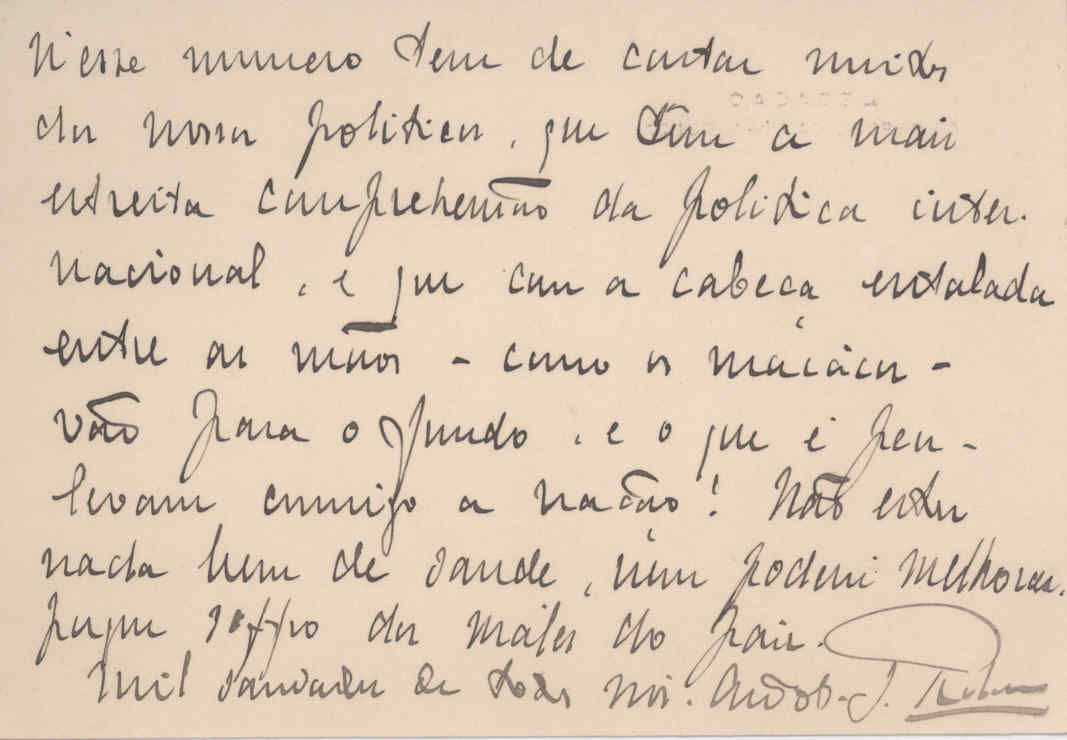 N'esse numero tem de contar muitos
da nossa politica, que tem a mais
estreita comprehensão da politica inter-
nacional, e que com a cabeça entalada
entre as mãos - como os macácos -
vão para o fundo, e o que é peor -
levam comsigo a nação! Não estou
nada bem de saude, nem poderei melhorar,
porque soffro dos males do paiz.
Mil saudades de todos nós.